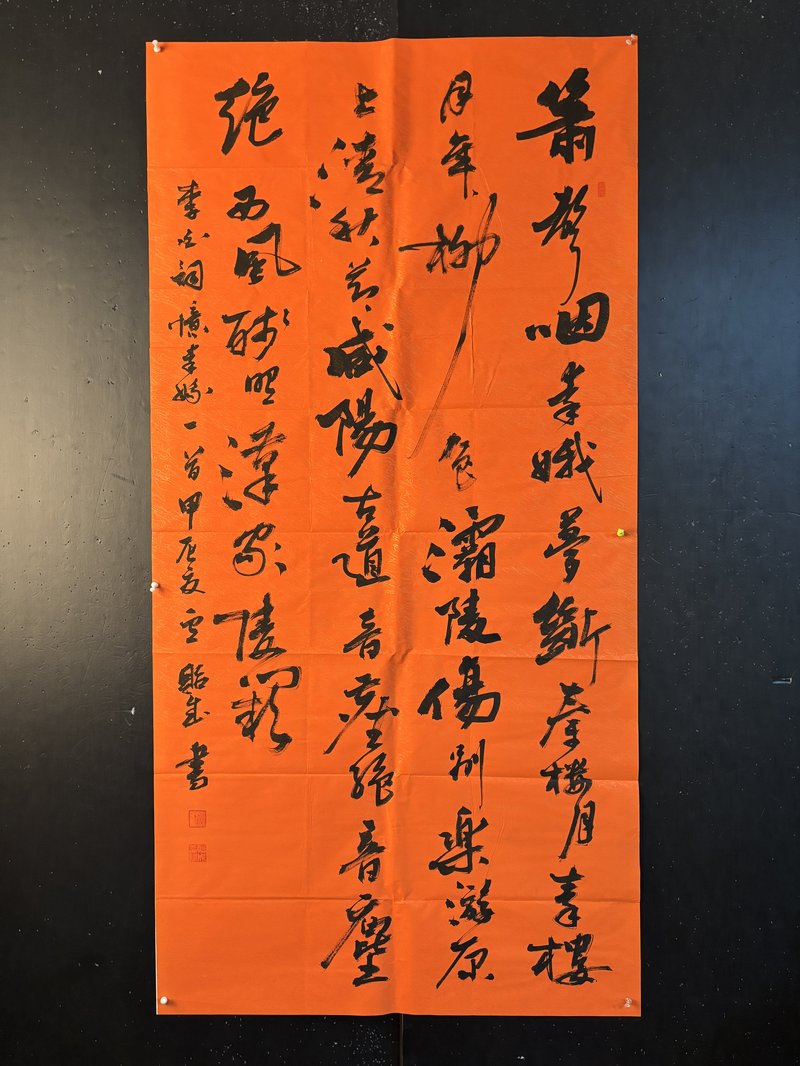 箫聲咽秦娥夢斷秦樓月秦樓
月年年柳色灞陵傷别樂游原
上清秋節咸陽古道音塵絕音塵
絕西風殘照漢家陵闕
李白詞憶秦娥一首甲辰夏書